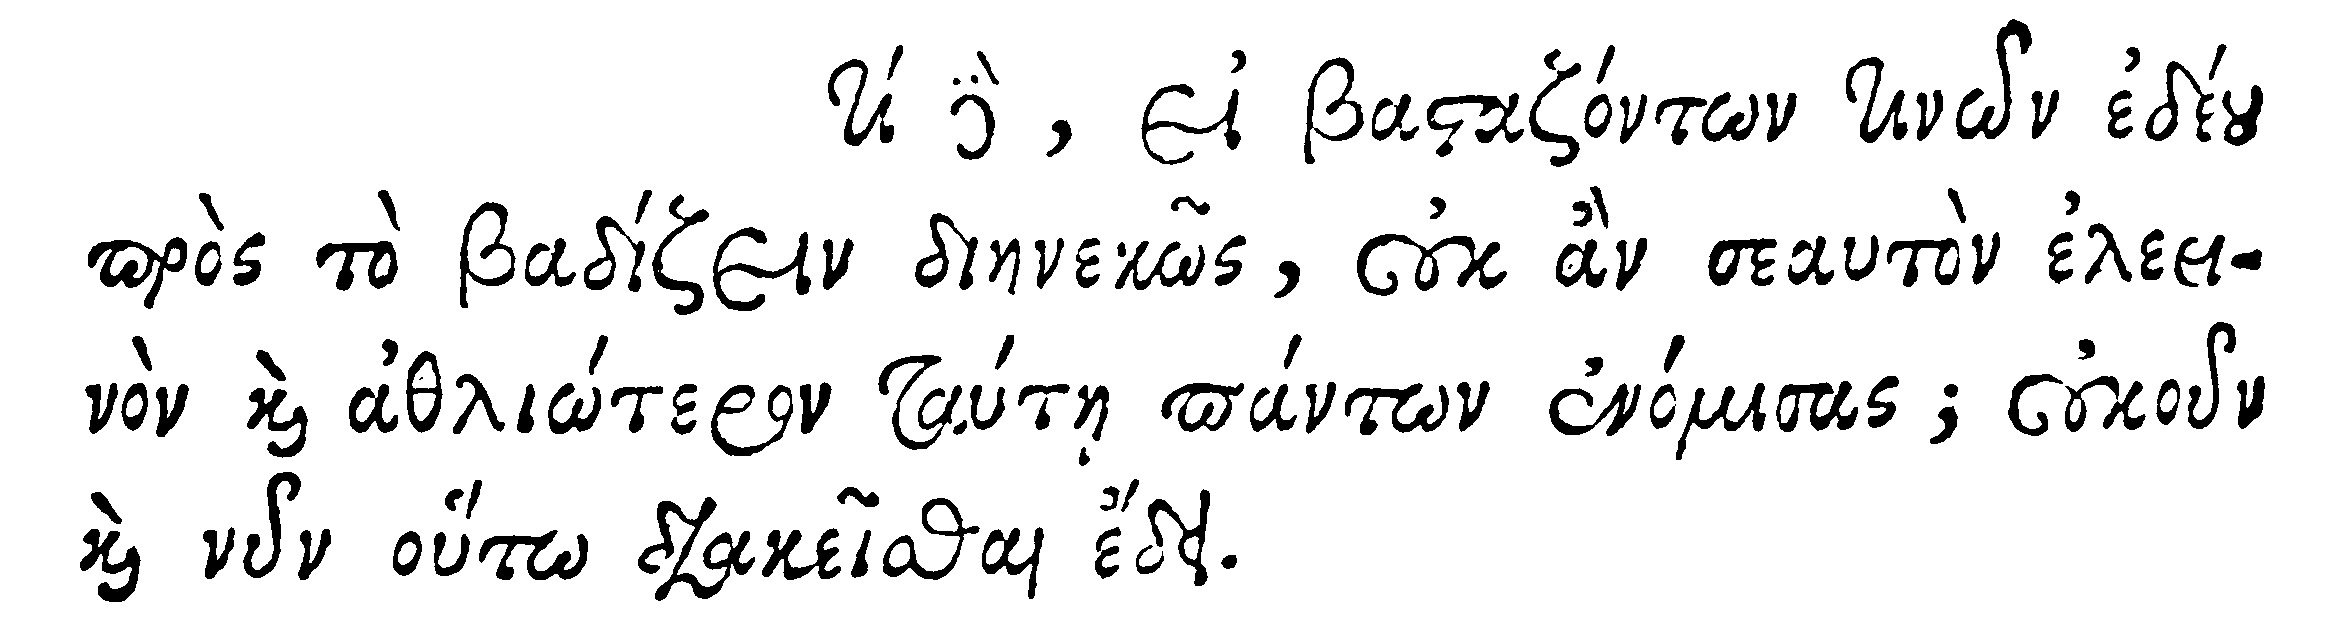 τί δὲ, εἰ βασταζόντων τινῶν ἐδέου
πρὸς τὸ βαδίζειν διηνεκῶς, οὐκ ἂν σεαυτὸν ἐλεει-
νὸν καὶ ἀθλιώτερον ταύτῃ πάντων ἐνόμισας; οὐκοῦν
καὶ νῦν οὕτω διακεῖσθαι ἔδει.